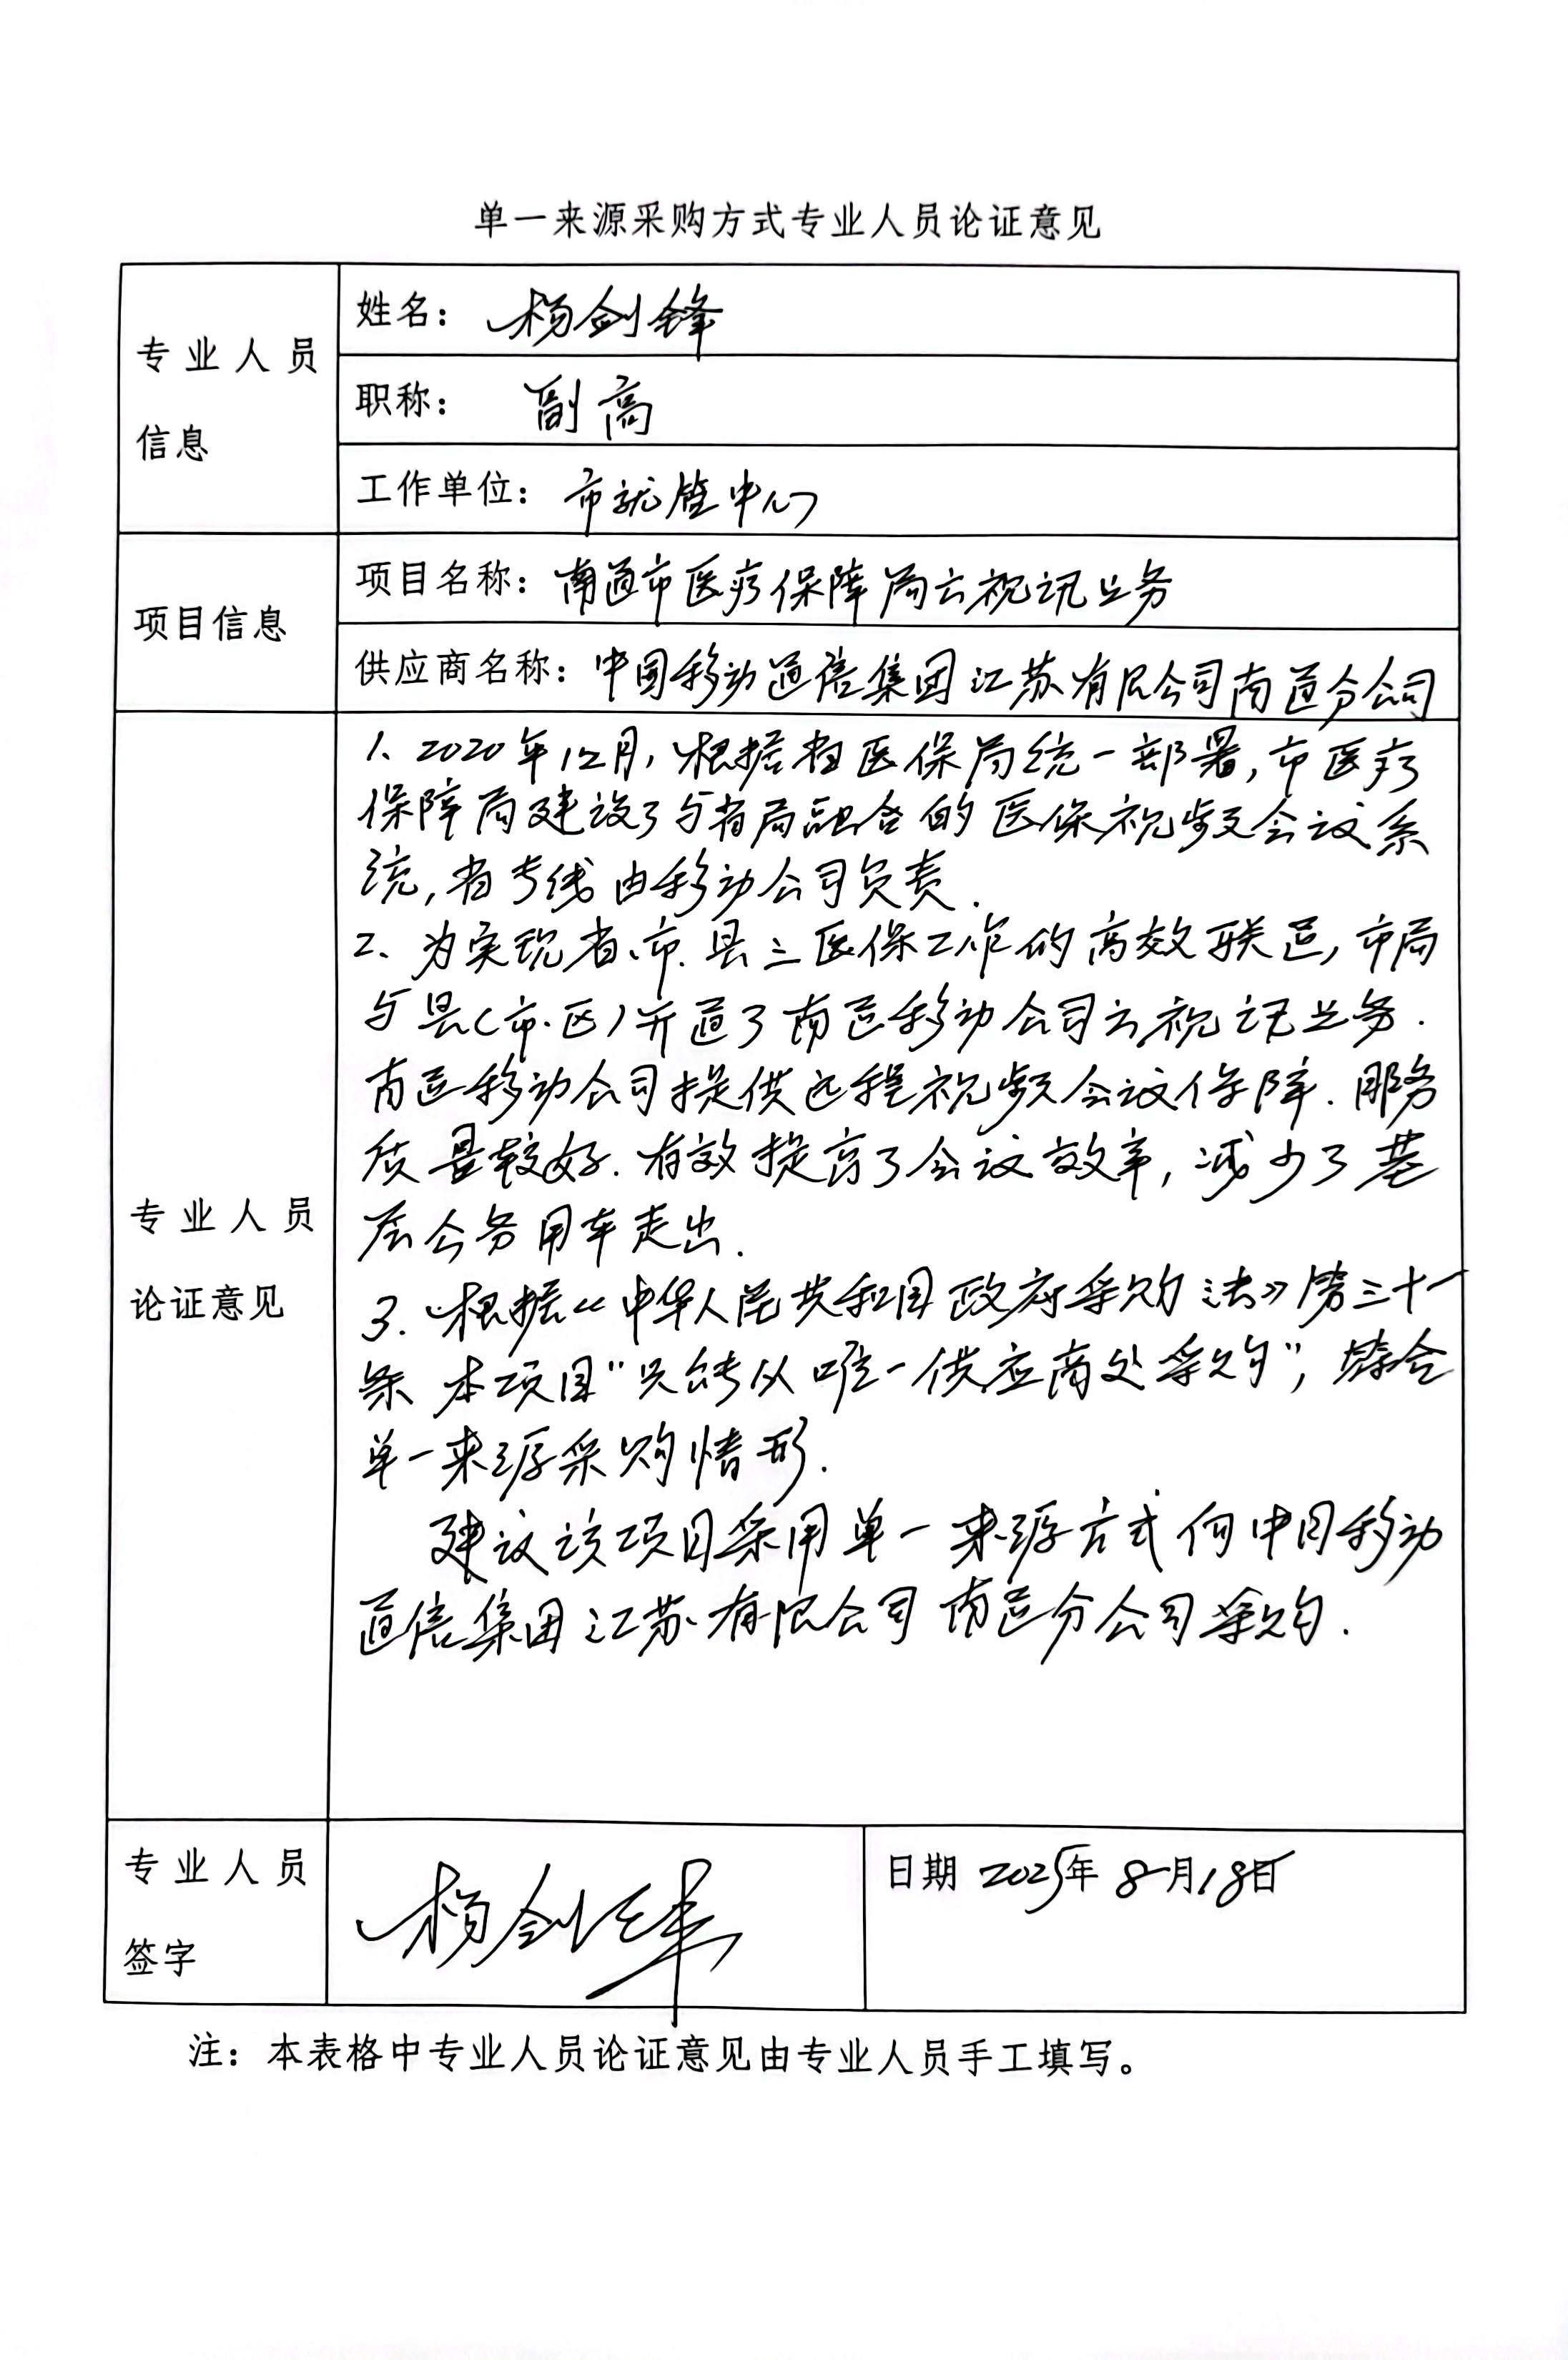 单一来源采购方式专业人员论证意见
专业人员
信息
姓名：杨剑锋
职称：副高
工作单位：市就管中心
项目信息
项目名称：南通市医疗保障局云视讯业务
供应商名称：中国移动通信集团江苏有限公司南通分公司
专业人员
论证意见
1、2020年12月，根据省医保局统一部署，市医疗
保障局建设了与省局融合的医保视频会议系
统，省专线由移动公司负责.
2、为实现省、市、县三医保工作的高效联通，市局
与县（市、区）开通了南通移动公司云视讯业务.
南通移动公司提供远程视频会议保障.服务
质量较好.有效提高了会议效率，减少了基
层公务用车支出.
3.根据《中华人民共和国政府采购法》第三十一
条 本项目"只能从唯一供应商处采购"，符合
单一来源采购情形.
建议该项目采用单一来源方式向中国移动
通信集团江苏有限公司南通分公司采购.
专业人员
签字
杨剑锋
日期 2025年8月18日
注：本表格中专业人员论证意见由专业人员手工填写。